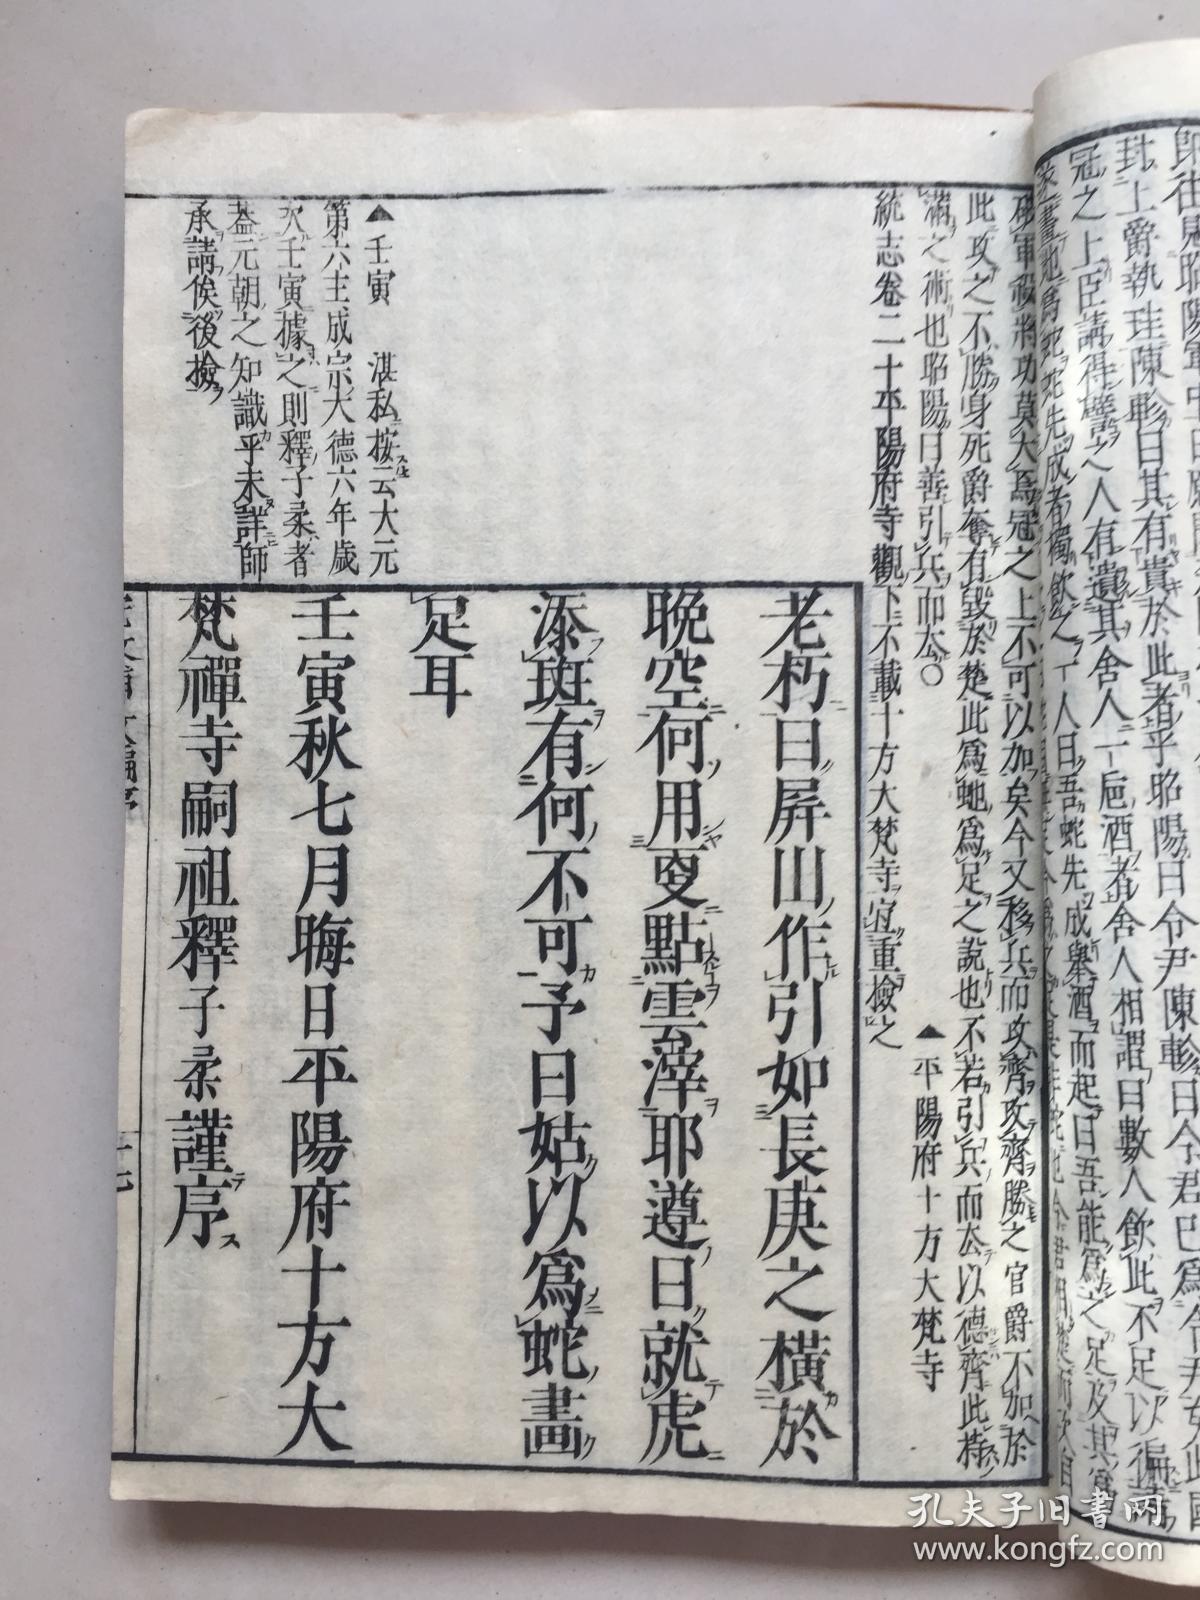 封上爵執珪陳軫曰其有貴於此者乎昭陽曰令尹陳軫曰今君已爲令尹矣此國
冠之上臣請得譬之人有遺其舍人一巵酒者舍人相謂曰數人飲此不足以徧請
遂畫地爲蛇蛇先成者獨飲之一人曰吾蛇先成舉酒而起曰吾能爲之足及其爲
破軍殺將功莫大焉冠之上不可以加矣今又移兵而攻齊攻齊勝之官爵不加於
此攻之不勝身死爵奪有毀於楚此爲蛇爲足之說也不若引兵而去以德齊此持
滿之術也昭陽曰善引兵而去〇
▲平陽府十方大梵寺
統志卷二十平陽府寺觀下不載十方大梵寺宜重檢之
老朽曰屛山作引如長庚之橫於
晚空何用更點雲滓耶遵曰就虎
添斑有何不可予曰姑以爲蛇畫
足耳
壬寅秋七月晦日平陽府十方大
梵禪寺嗣祖釋子柔謹序
▲壬寅 湛私按云大元
第六主成宗大德六年歲
次壬寅據之則釋子柔者
蓋元朝之知識乎未詳師
承請俟後撿
十七
孔夫子旧书网
www.kongfz.com